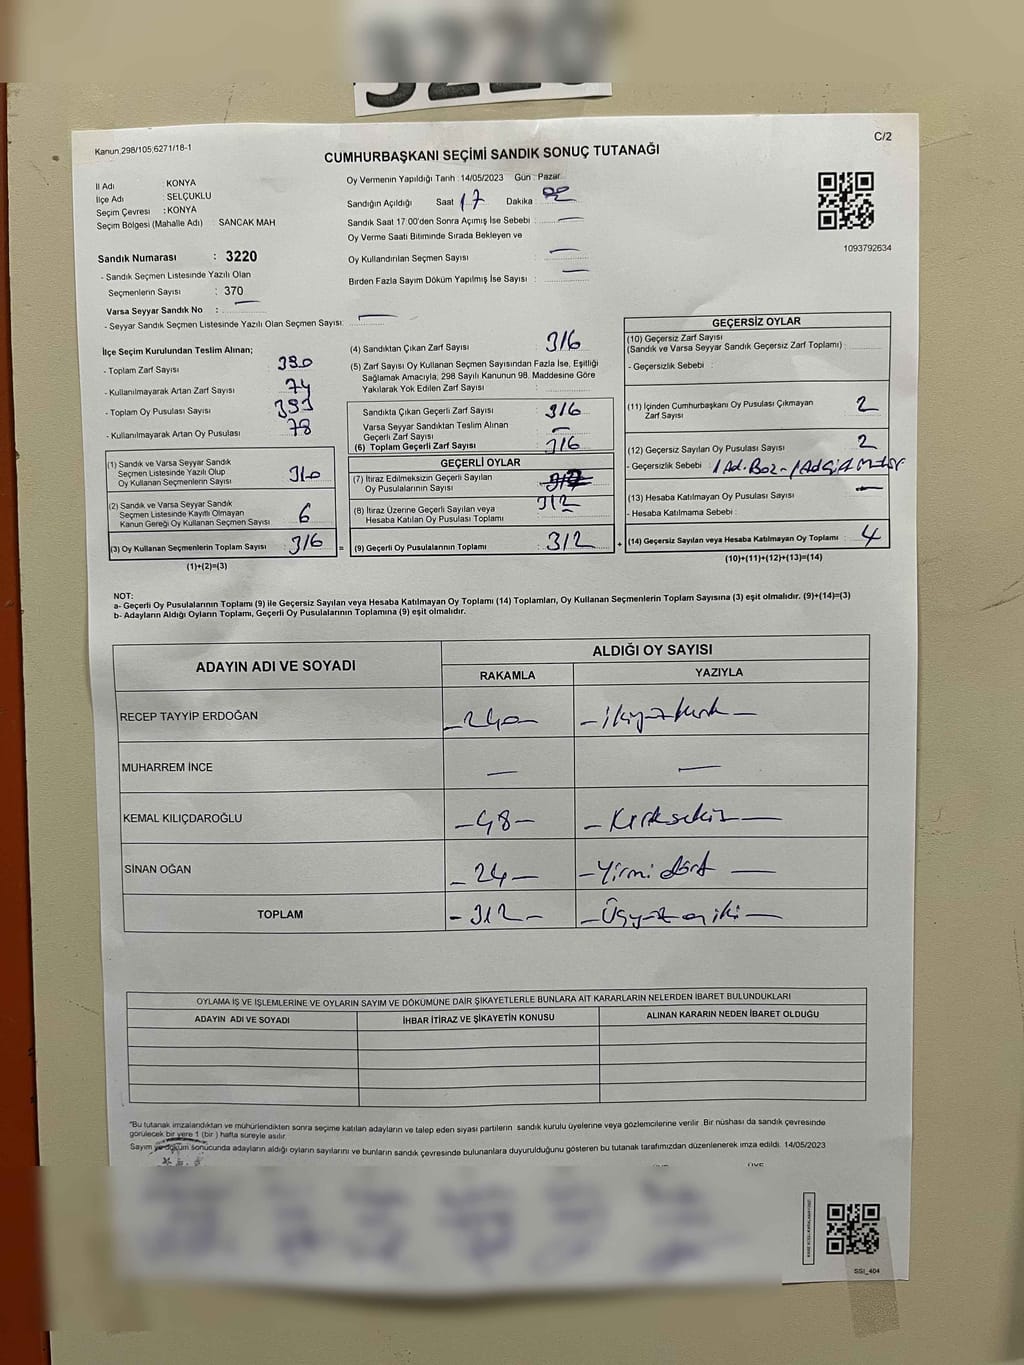 3220
Kanun.298/105;6271/18-1
C/2
CUMHURBAŞKANI SEÇİMİ SANDIK SONUÇ TUTANAĞI
İl Adı : KONYA
İlçe Adı : SELÇUKLU
Seçim Çevresi : KONYA
Seçim Bölgesi (Mahalle Adı) : SANCAK MAH
Sandık Numarası : 3220
- Sandık Seçmen Listesinde Yazılı Olan
Seçmenlerin Sayısı : 370
Varsa Seyyar Sandık No : —
- Seyyar Sandık Seçmen Listesinde Yazılı Olan Seçmen Sayısı: —
Oy Vermenin Yapıldığı Tarih : 14/05/2023 Gün : Pazar
Sandığın Açıldığı Saat 17 Dakika :
Sandık Saat 17:00'den Sonra Açımış İse Sebebi : —
Oy Verme Saati Bitiminde Sırada Bekleyen ve
Oy Kullandırılan Seçmen Sayısı : —
Birden Fazla Sayım Döküm Yapılmış İse Sayısı : —
1093792634
İlçe Seçim Kurulundan Teslim Alınan;
- Toplam Zarf Sayısı : 390
- Kullanılmayarak Artan Zarf Sayısı : 74
- Toplam Oy Pusulası Sayısı : 393
- Kullanılmayarak Artan Oy Pusulası : 78
(1) Sandık ve Varsa Seyyar Sandık
Seçmen Listesinde Yazılı Olup
Oy Kullanan Seçmenlerin Sayısı : 310
(2) Sandık ve Varsa Seyyar Sandık
Seçmen Listesinde Kayıtlı Olmayan
Kanun Gereği Oy Kullanan Seçmen Sayısı : 6
(3) Oy Kullanan Seçmenlerin Toplam Sayısı : 316
(1)+(2)=(3)
(4) Sandıktan Çıkan Zarf Sayısı : 316
(5) Zarf Sayısı Oy Kullanan Seçmen Sayısından Fazla İse, Eşitliği
Sağlamak Amacıyla, 298 Sayılı Kanunun 98. Maddesine Göre
Yakılarak Yok Edilen Zarf Sayısı :
Sandıkta Çıkan Geçerli Zarf Sayısı : 316
Varsa Seyyar Sandıktan Teslim Alınan
Geçerli Zarf Sayısı : —
(6) Toplam Geçerli Zarf Sayısı : 316
GEÇERLİ OYLAR
(7) İtiraz Edilmeksizin Geçerli Sayılan
Oy Pusulalarının Sayısı :
(8) İtiraz Üzerine Geçerli Sayılan veya
Hesaba Katılan Oy Pusulası Toplamı : 312
= (9) Geçerli Oy Pusulalarının Toplamı : 312
GEÇERSİZ OYLAR
(10) Geçersiz Zarf Sayısı
(Sandık ve Varsa Seyyar Sandık Geçersiz Zarf Toplamı) :
- Geçersizlik Sebebi :
(11) İçinden Cumhurbaşkanı Oy Pusulası Çıkmayan
Zarf Sayısı : 2
(12) Geçersiz Sayılan Oy Pusulası Sayısı : 2
- Geçersizlik Sebebi : 1 Ad. Boş - 1 Ad
(13) Hesaba Katılmayan Oy Pusulası Sayısı : —
- Hesaba Katılmama Sebebi :
+ (14) Geçersiz Sayılan veya Hesaba Katılmayan Oy Toplamı : 4
(10)+(11)+(12)+(13)=(14)
NOT:
a- Geçerli Oy Pusulalarının Toplamı (9) ile Geçersiz Sayılan veya Hesaba Katılmayan Oy Toplamı (14) Toplamları, Oy Kullanan Seçmenlerin Toplam Sayısına (3) eşit olmalıdır. (9)+(14)=(3)
b- Adayların Aldığı Oyların Toplamı, Geçerli Oy Pusulalarının Toplamına (9) eşit olmalıdır.
ADAYIN ADI VE SOYADI ALDIĞI OY SAYISI
RAKAMLA YAZIYLA
RECEP TAYYİP ERDOĞAN - 240 - - İkiyüzkırk -
MUHARREM İNCE — —
KEMAL KILIÇDAROĞLU - 48 - - Kırksekiz -
SİNAN OĞAN - 24 - - Yirmi dört -
TOPLAM - 312 - - Üçyüz on iki -
OYLAMA İŞ VE İŞLEMLERİNE VE OYLARIN SAYIM VE DÖKÜMÜNE DAİR ŞİKAYETLERLE BUNLARA AİT KARARLARIN NELERDEN İBARET BULUNDUKLARI
ADAYIN ADI VE SOYADI İHBAR İTİRAZ VE ŞİKAYETİN KONUSU ALINAN KARARIN NEDEN İBARET OLDUĞU
"Bu tutanak imzalandıktan ve mühürlendikten sonra seçime katılan adayların ve talep eden siyasi partilerin sandık kurulu üyelerine veya gözlemcilerine verilir. Bir nüshası da sandık çevresinde
görülecek bir yere 1 (bir) hafta süreyle asılır.
Sayım ve döküm sonucunda adayların aldığı oyların sayılarını ve bunların sandık çevresinde bulunanlara duyurulduğunu gösteren bu tutanak tarafımızdan düzenlenerek imza edildi. 14/05/2023
SSI_404